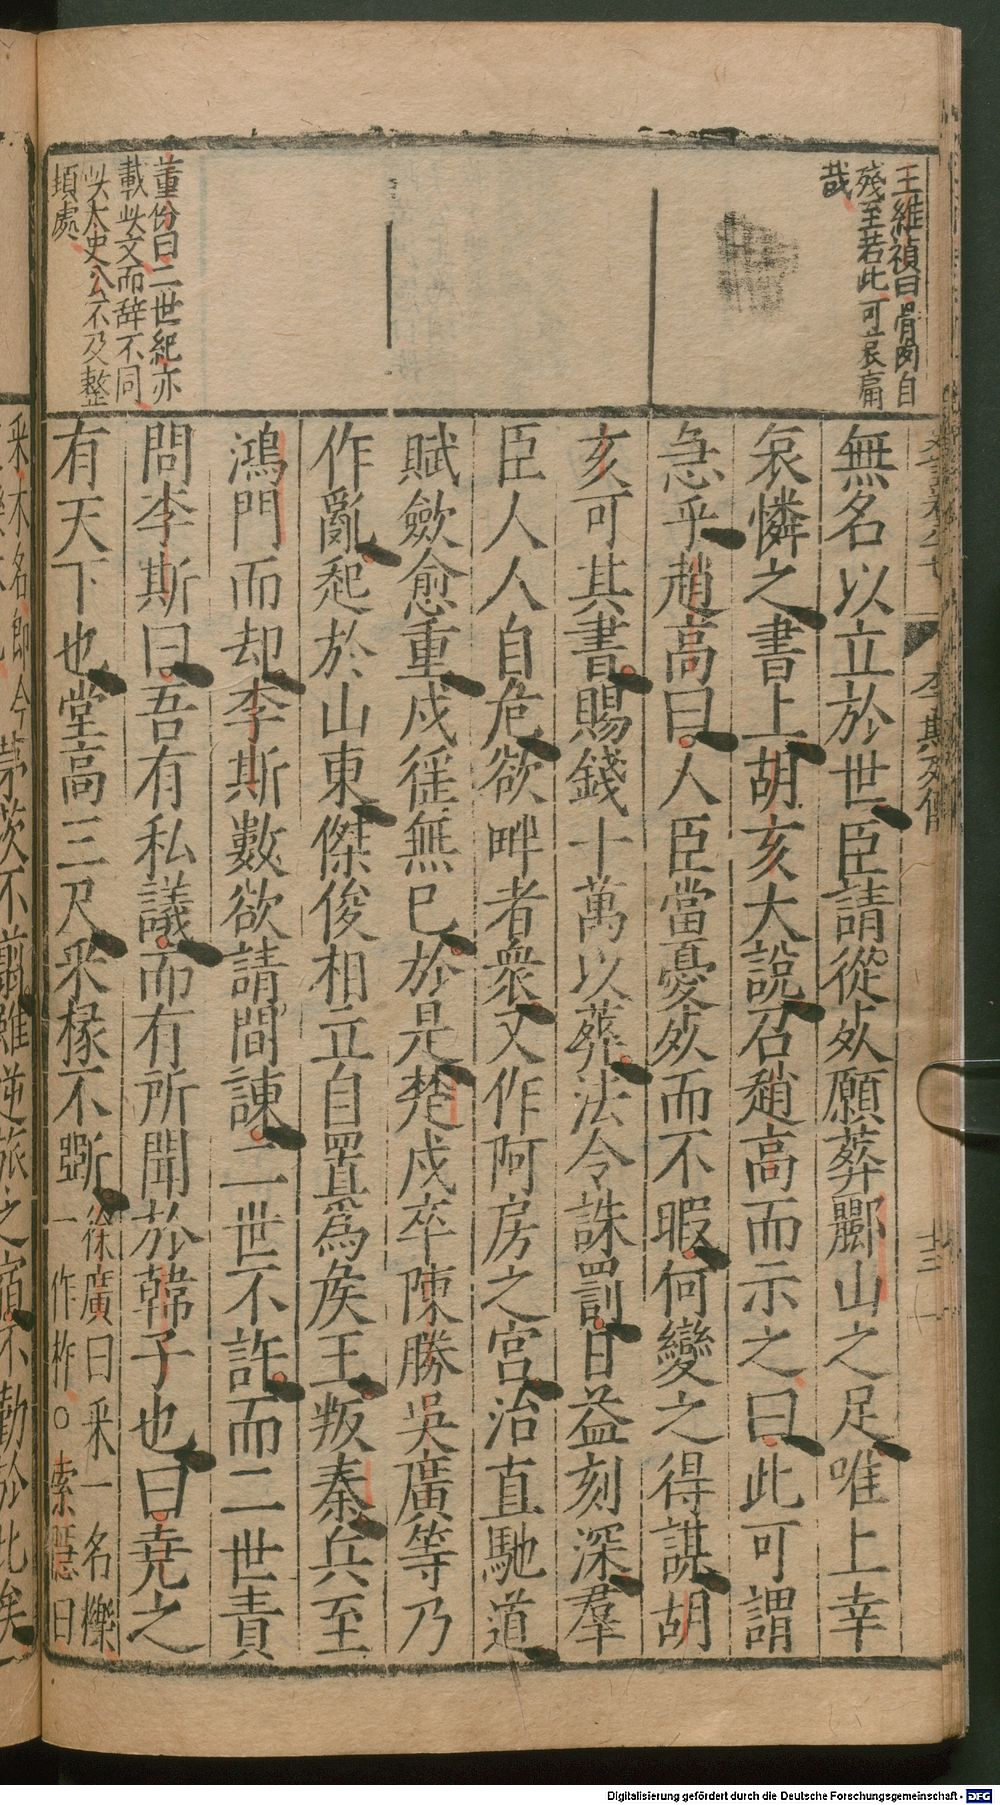 王維禎曰骨肉自
殘至若此可哀痛
哉
董份曰二世紀亦
載此文而辞不同
此太史公不及整
頓處
李斯列傳
十三
無名以立於世臣請從死願葬酈山之足唯上幸
哀憐之書上胡亥大說召趙高而示之曰此可謂
急乎趙高曰人臣當憂死而不暇何變之得謀胡
亥可其書賜錢十萬以葬法令誅罰日益刻深羣
臣人人自危欲畔者衆又作阿房之宮治直馳道
賦斂愈重戍徭無已於是楚戍卒陳勝吳廣等乃
作亂起於山東傑俊相立自置爲矦王叛秦兵至
鴻門而却李斯數欲請間諫二世不許而二世責
問李斯曰吾有私議而有所聞於韓子也曰堯之
有天下也堂高三尺采椽不斲徐廣曰采一名櫟
一作柞○索隱曰
采木名即今
茅茨不翦雖逆旅之宿不勤於此矣
Digitalisierung gefördert durch die Deutsche Forschungsgemeinschaft - DFG